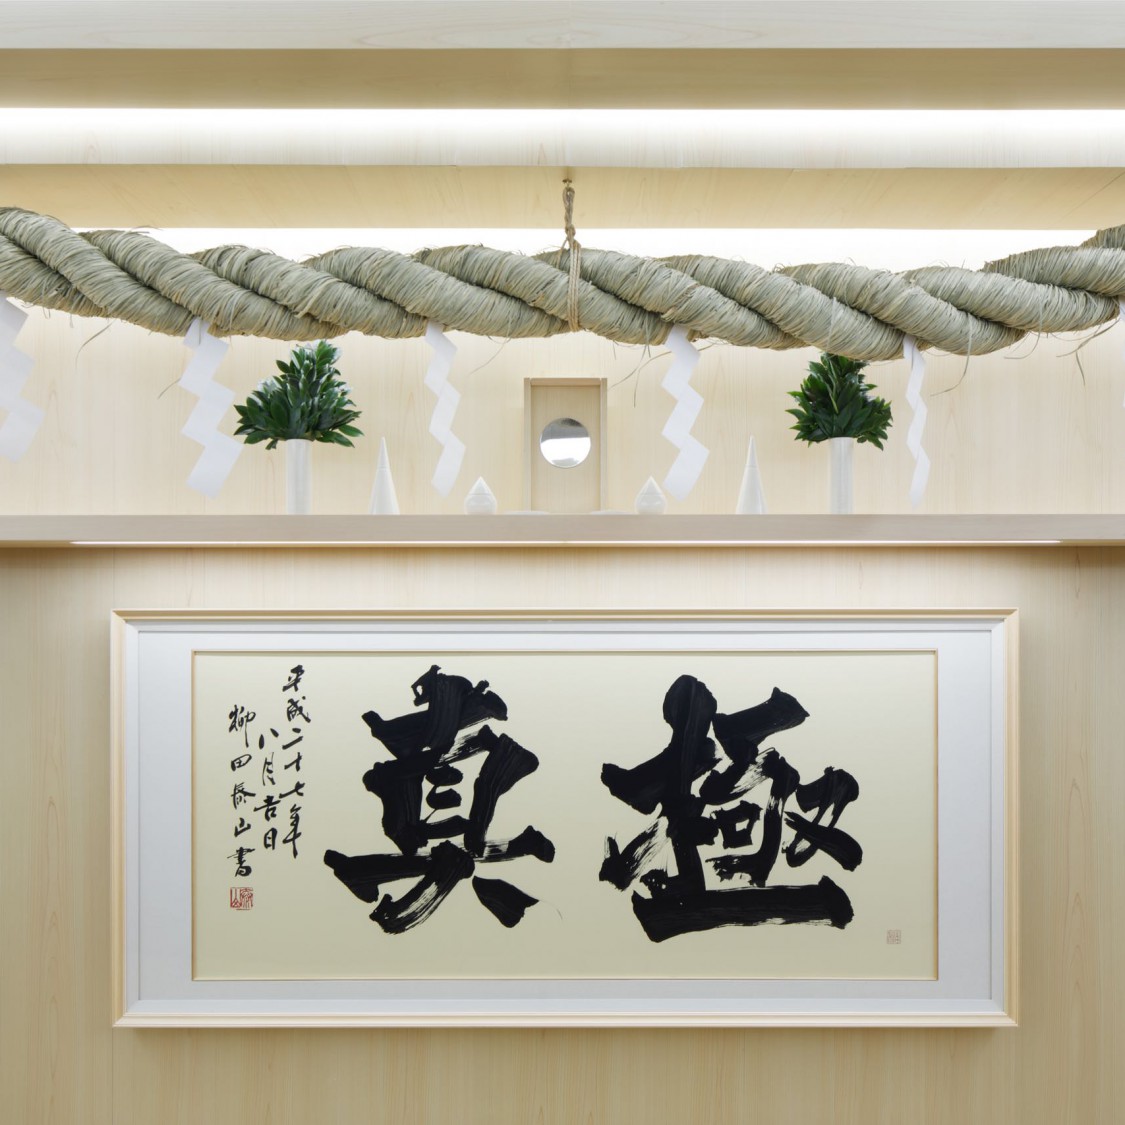 極真
平成二十七年
八月吉日
柳田泰山書